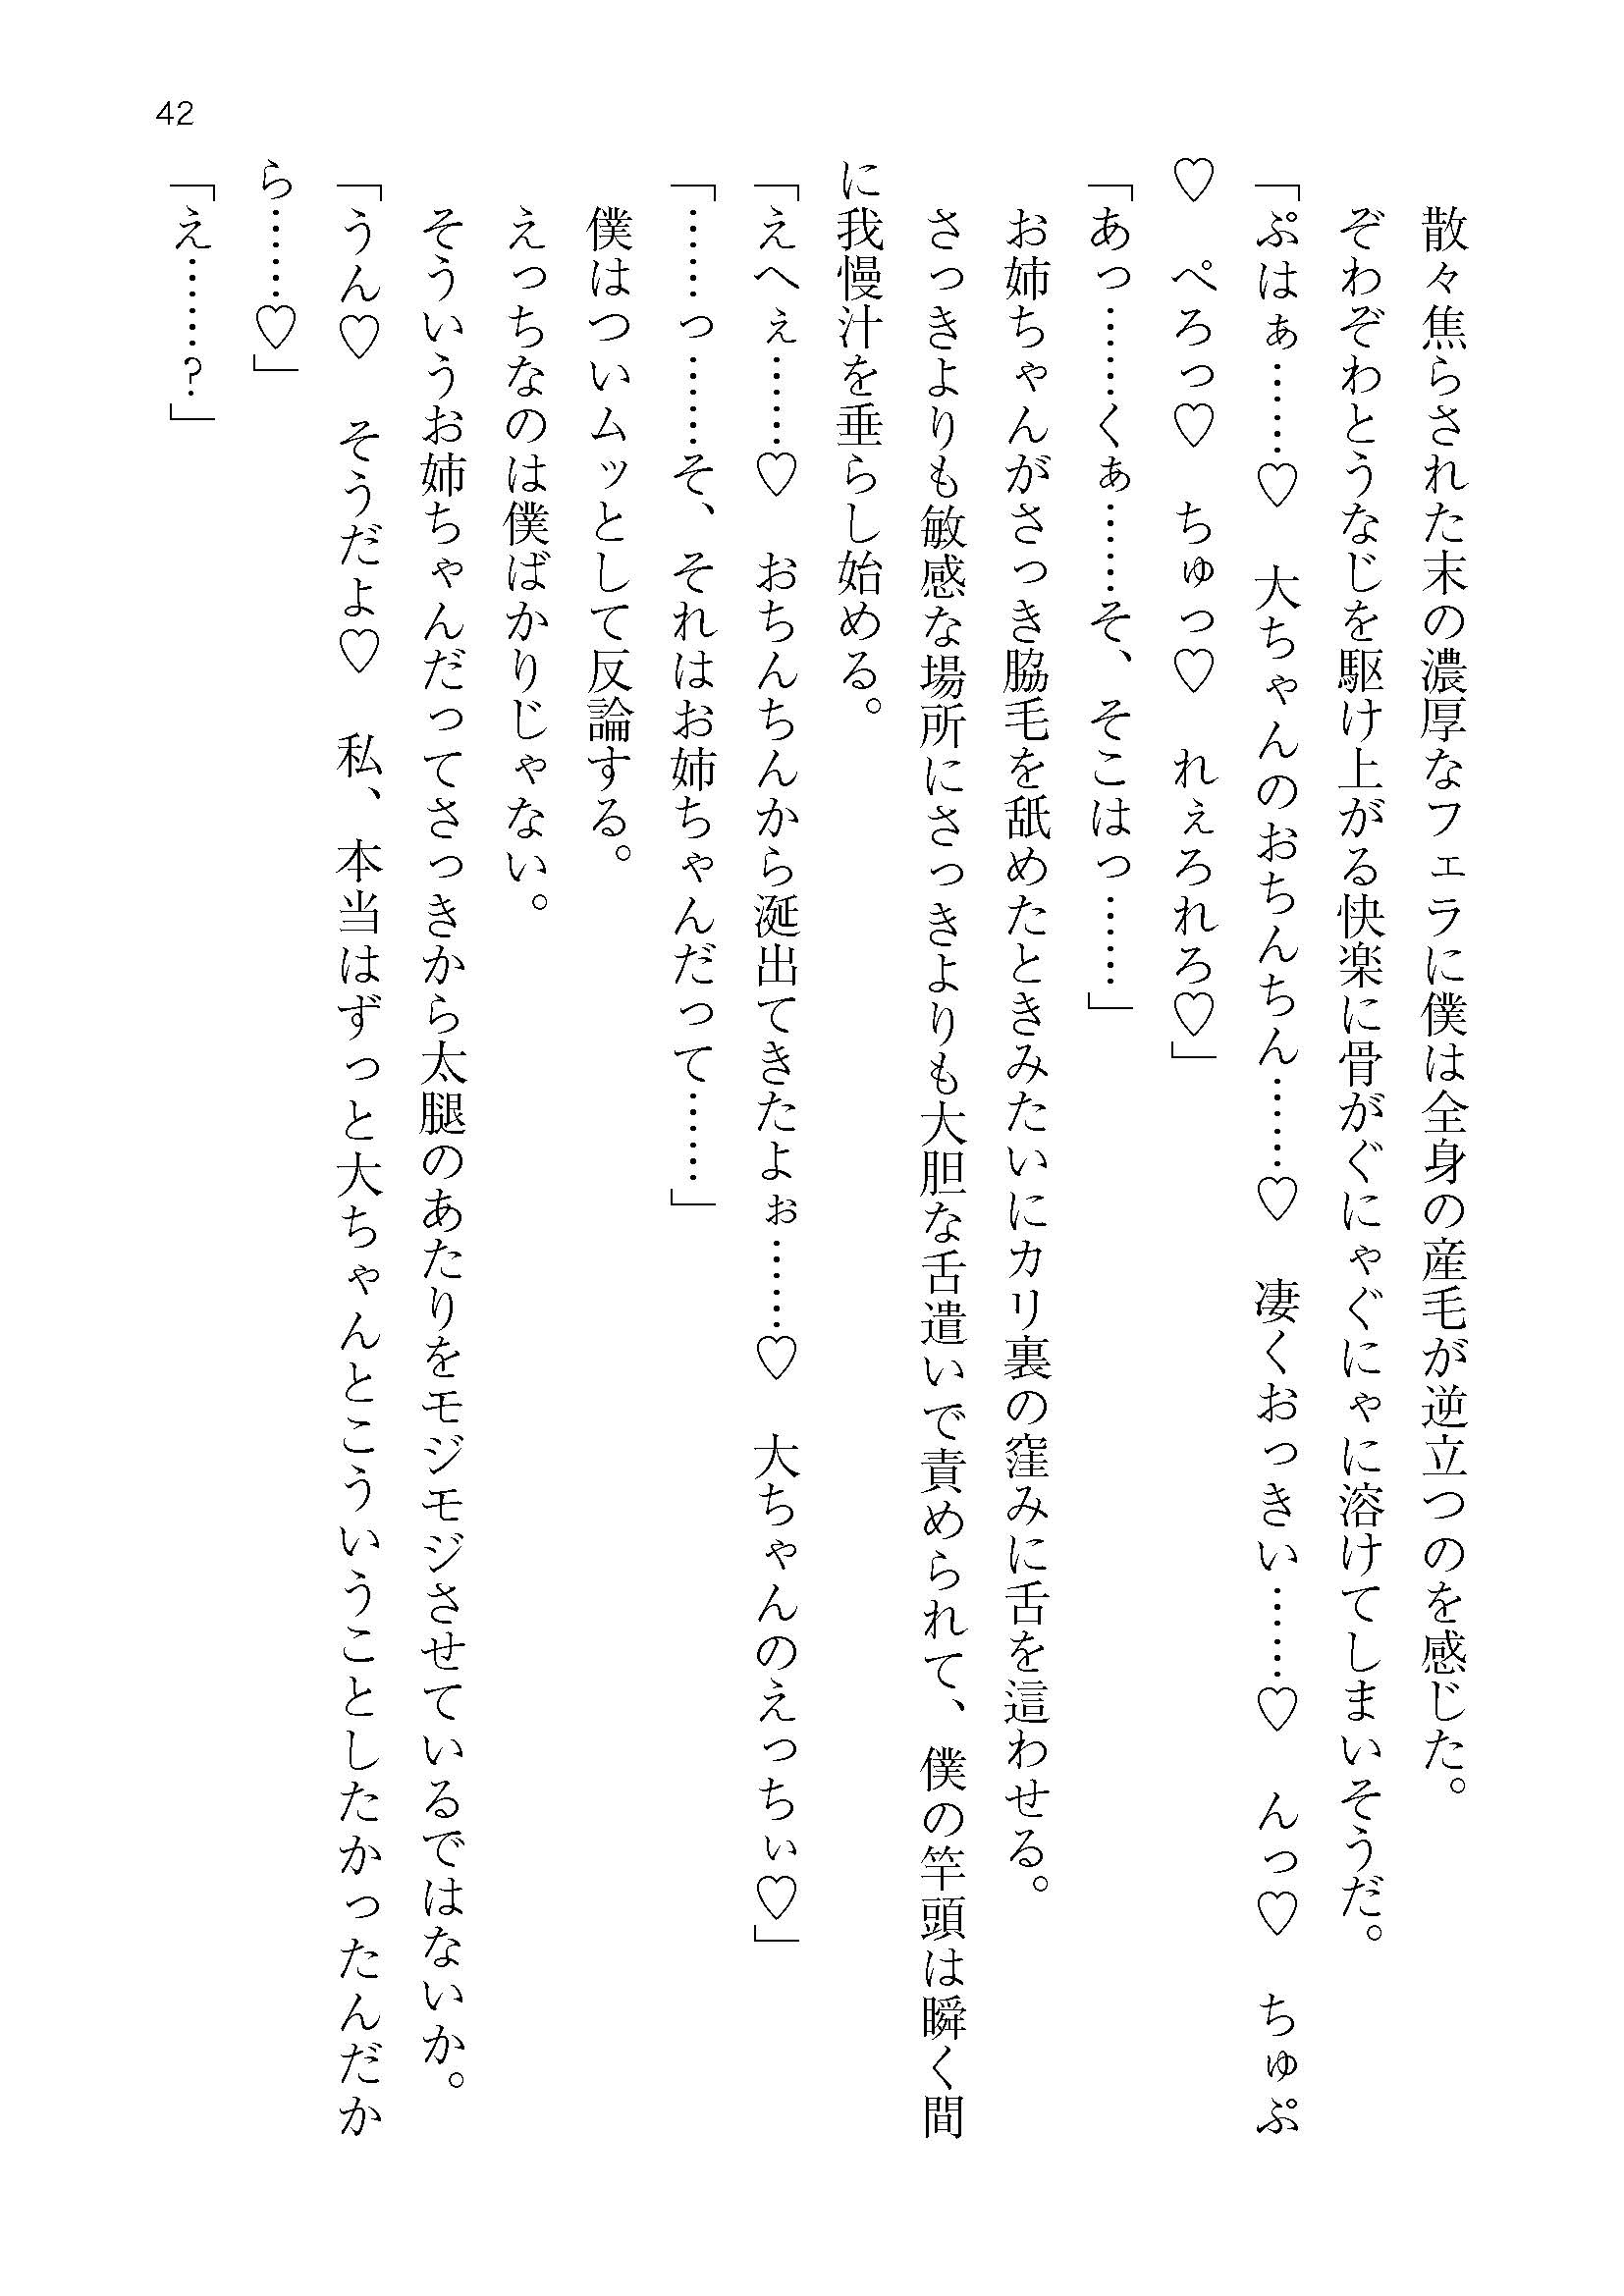 42
散々焦らされた末の濃厚なフェラに僕は全身の産毛が逆立つのを感じた。
ぞわぞわとうなじを駆け上がる快楽に骨がぐにゃぐにゃに溶けてしまいそうだ。
「ぷはぁ……♡　大ちゃんのおちんちん……♡　凄くおっきい……♡　んっ♡　ちゅぷ
♡　ぺろっ♡　ちゅっ♡　れぇろれろ♡」
「あっ……くぁ……そ、そこはっ……」
お姉ちゃんがさっき脇毛を舐めたときみたいにカリ裏の窪みに舌を這わせる。
さっきよりも敏感な場所にさっきよりも大胆な舌遣いで責められて、僕の竿頭は瞬く間
に我慢汁を垂らし始める。
「えへぇ……♡　おちんちんから涎出てきたよぉ……♡　大ちゃんのえっちぃ♡」
「……っ……そ、それはお姉ちゃんだって……」
僕はついムッとして反論する。
えっちなのは僕ばかりじゃない。
そういうお姉ちゃんだってさっきから太腿のあたりをモジモジさせているではないか。
「うん♡　そうだよ♡　私、本当はずっと大ちゃんとこういうことしたかったんだか
ら……♡」
「え……?」